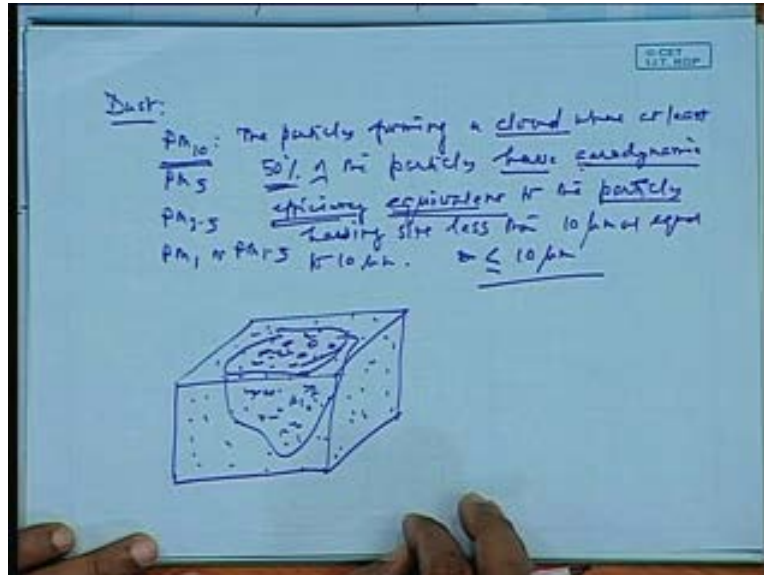 © CET
I.I.T. KGP
Dust:
PM10: The particles forming a cloud where at least
PM5 50% of the particles have aerodynamic
PM2.5 efficiency equivalent to the particles
having size less than 10 μm or equal
PM1 or PM1.5 to 10 μm. ≤ 10 μm